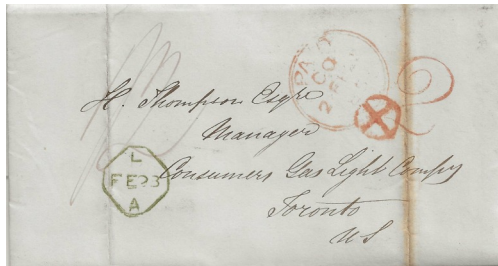 PAID
H. Thompson Esqre
Manager
Consumers Gas Light Compy
Toronto
US
L
FE 23
A